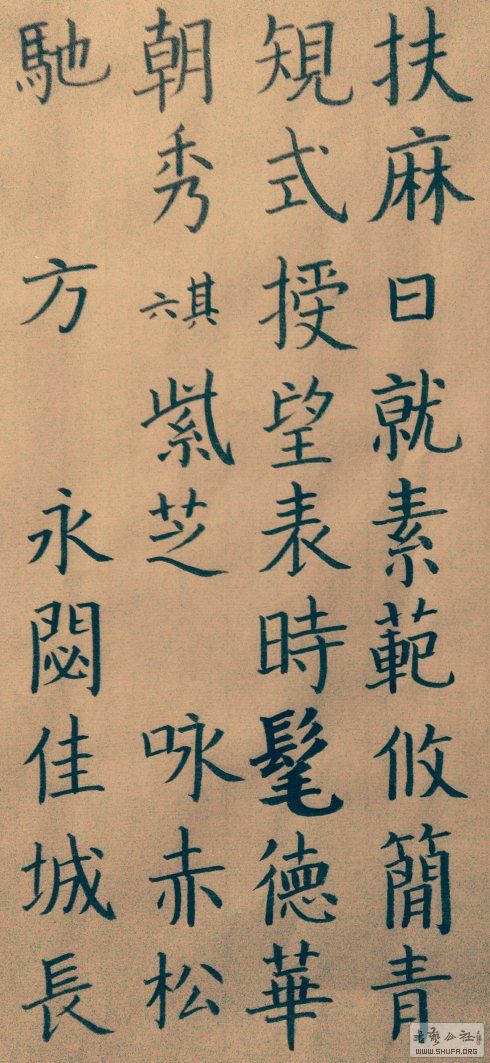 扶麻日就素範攸簡青
規式授望表時髦德華
朝秀 六其 紫芝 咏赤松
馳 方 永閟佳城長
书艺公社
WWW.SHUFA.ORG